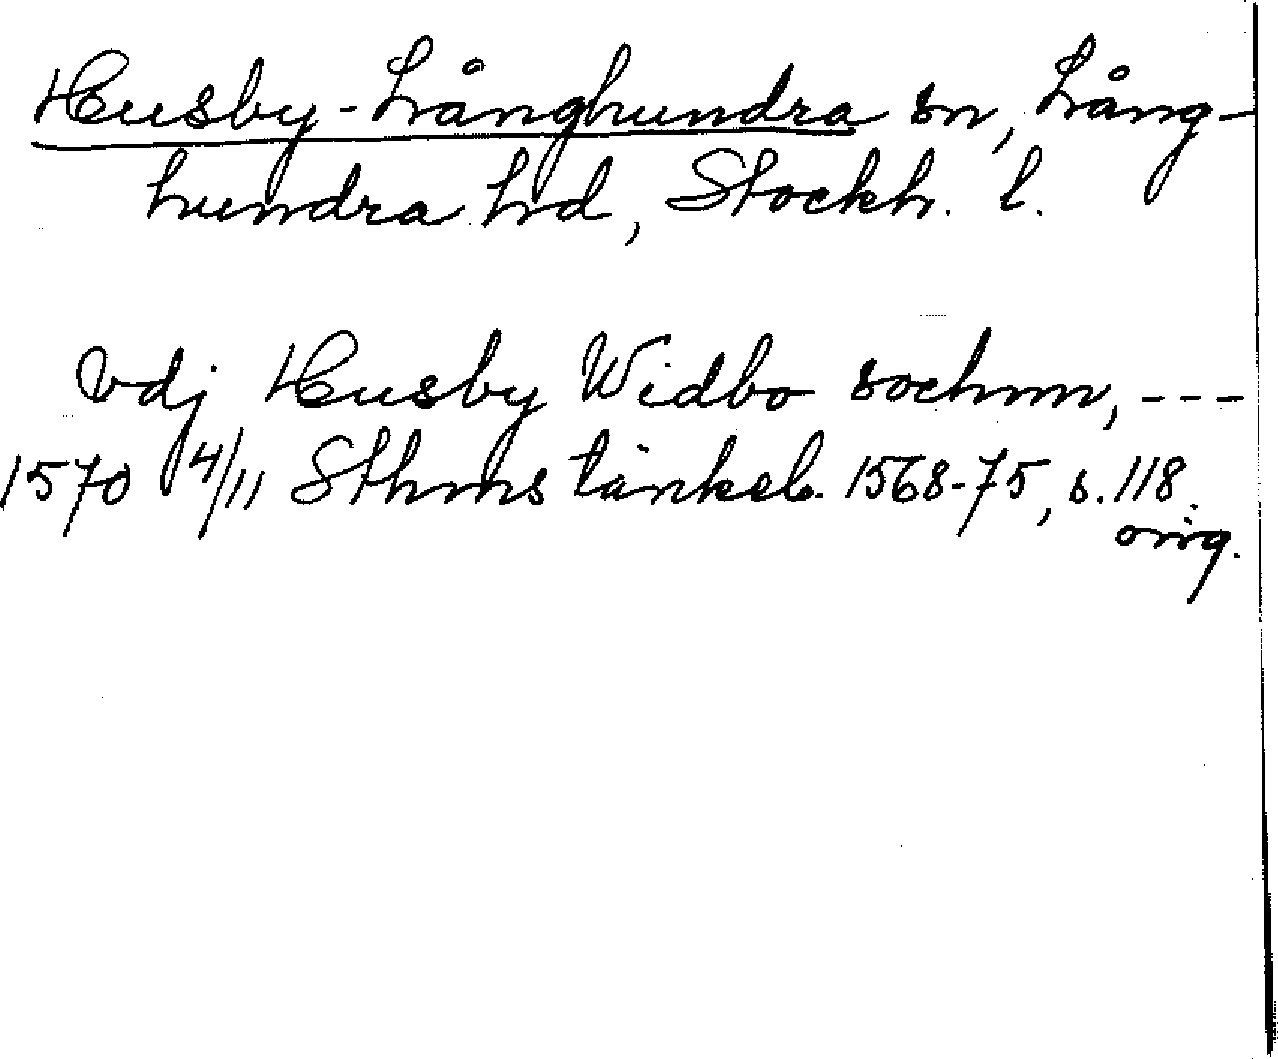 Husby-Långhundra sn, Lång-
hundra hd, Stockh. l.
vdj Husby Widbo sochnn, ---
1570 4/11 Sthms tänkeb. 1568-75, s. 118.
orig.